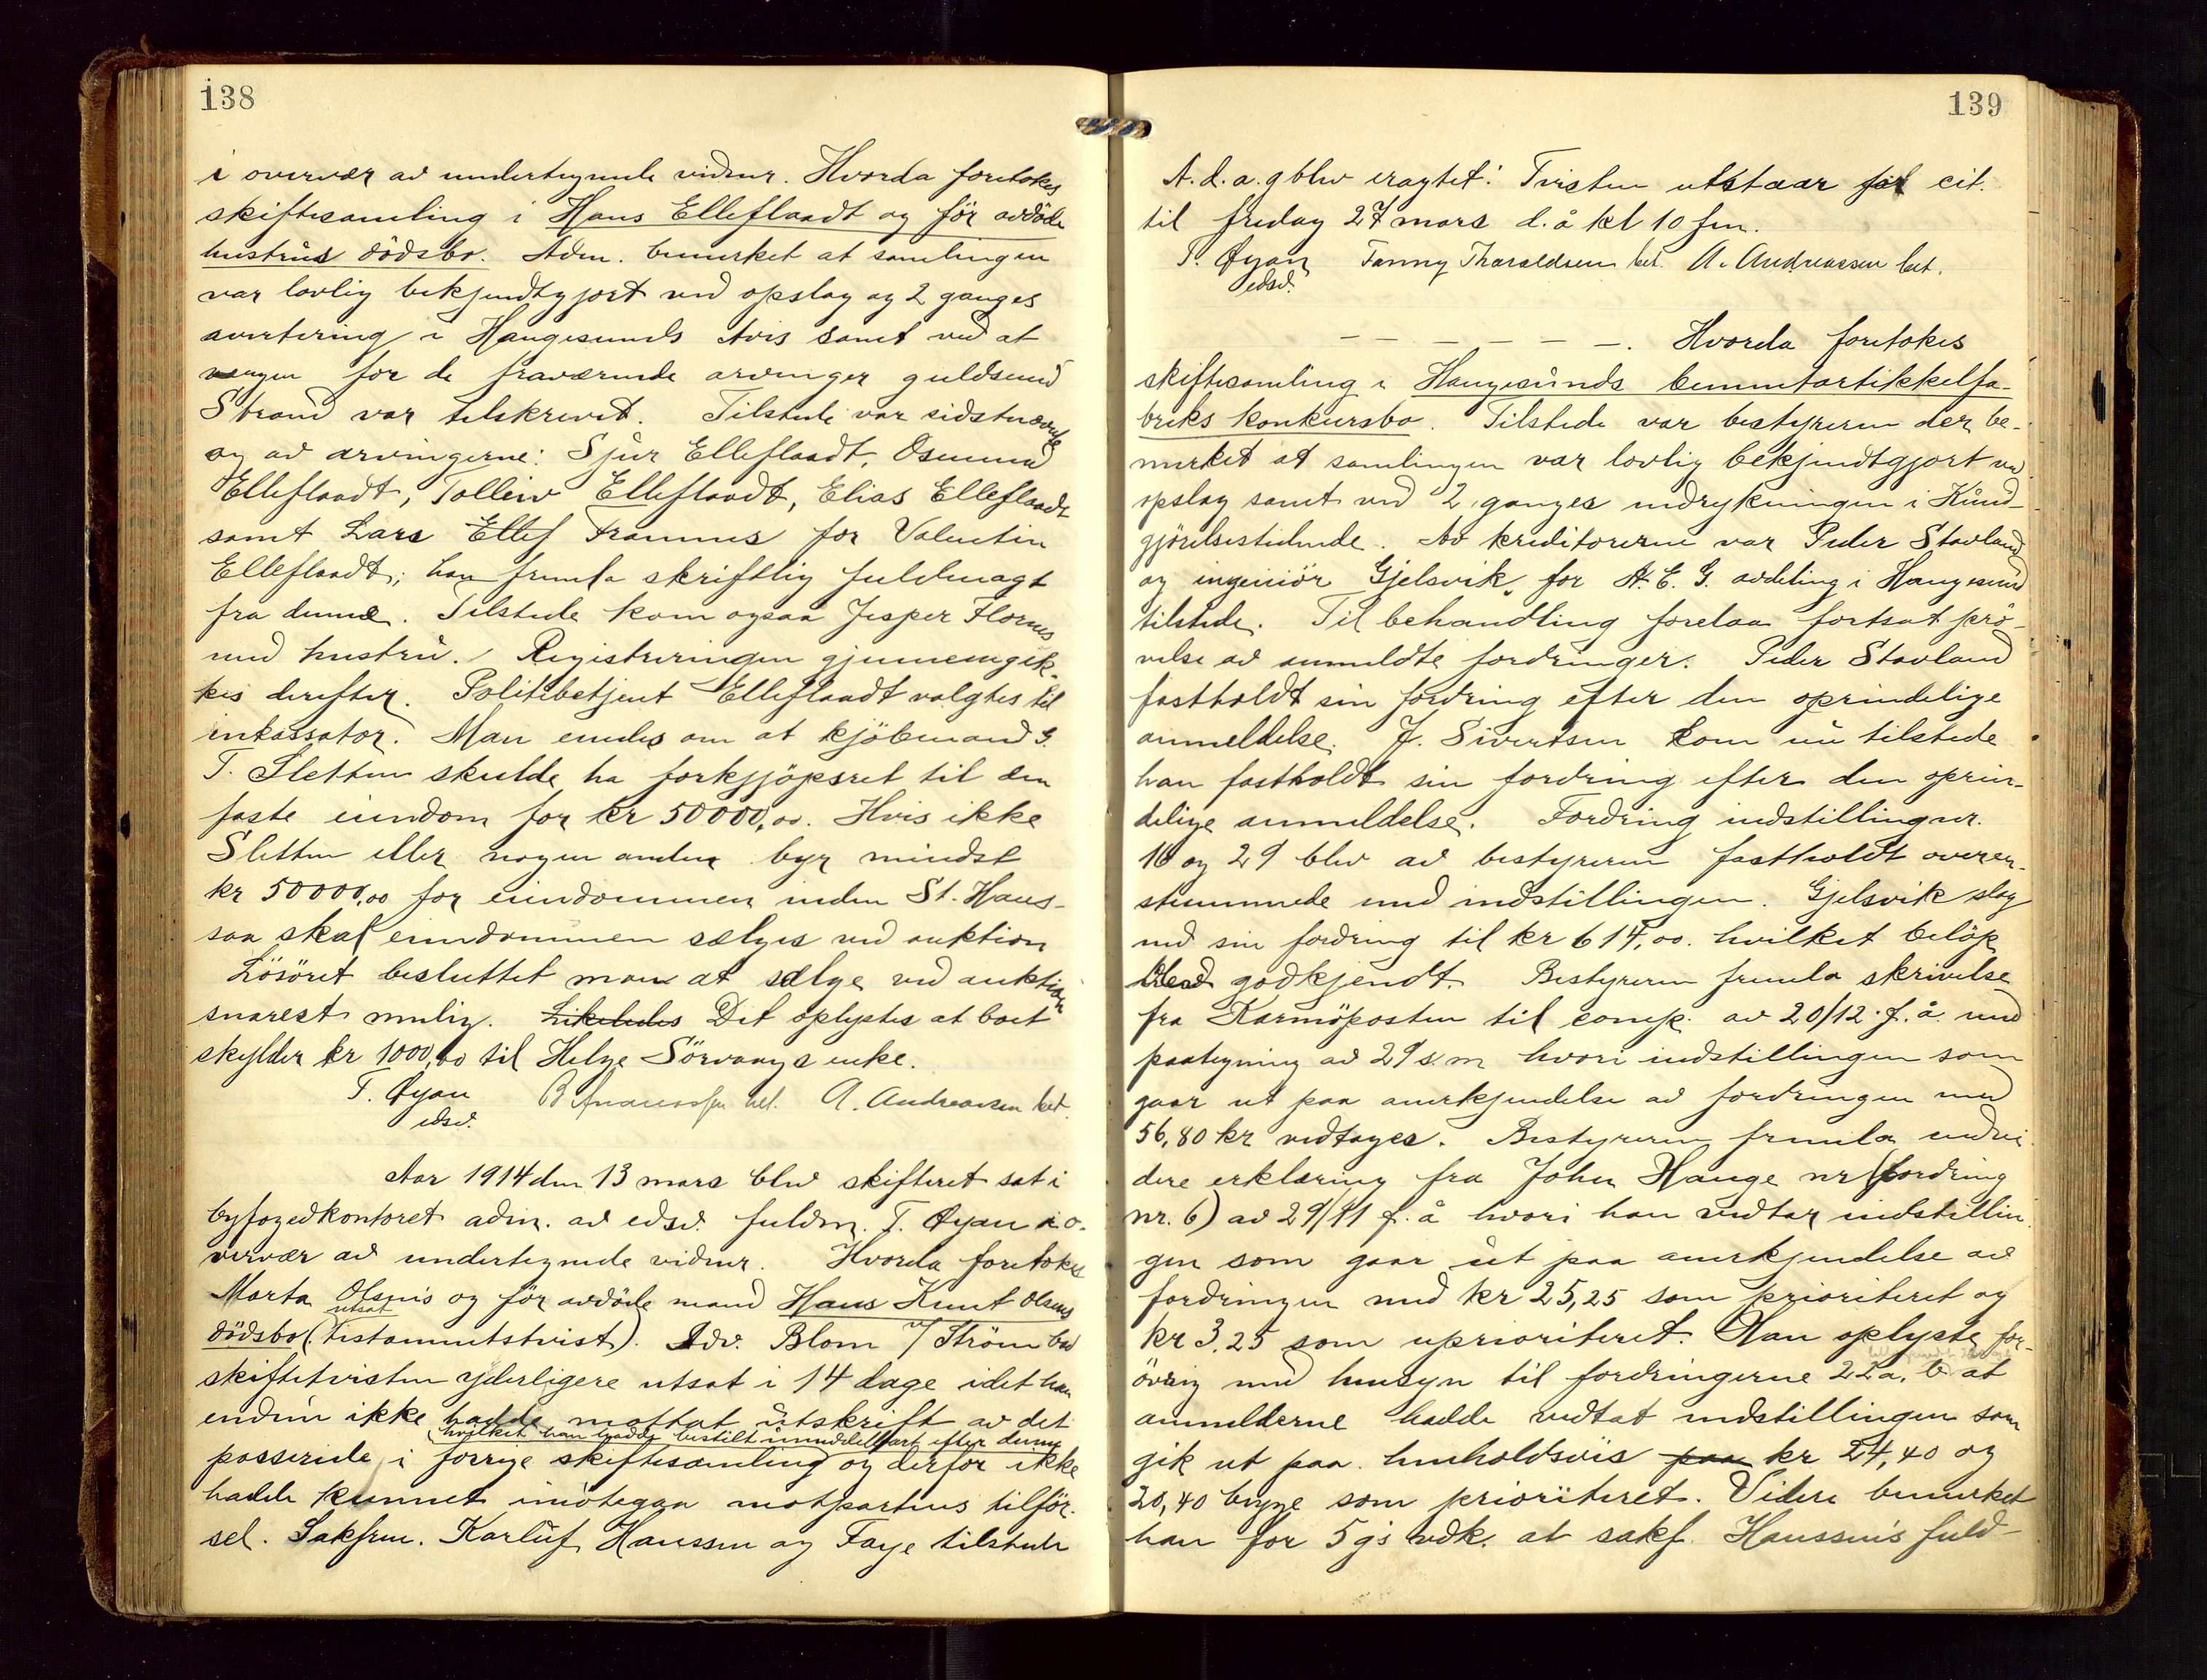 138
i overvær av undertegnede vidner. Hvorda foretokes
skiftesamling i Hans Elleflaadt og før avdöde
hustrus dödsbo. Adm. bemerket at samlingen
var lovlig bekjendtgjort ved opslag og 2 ganges
avertering i Haugesunds Avis samt ved at
vergen for de fraværende arvinger guldsmed
Strand var tilskrevet. Tilstede var sidstnævnte
og av arvingerne: Sjur Elleflaadt, Osmund
Elleflaadt, Tolleiv Elleflaadt, Elias Elleflaadt
samt Lars Ellef Framnes for Valentin
Elleflaadt; han fremla skriftlig fuldmagt
fra denne. Tilstede kom ogsaa Jesper Flornes
med hustru. Registreringen gjennemgik-
kes derefter. Politibetjent Elleflaadt valgtes til
inkassator. Man enedes om at kjöbmand G.
T. Sletten skulde ha forkjöpsret til den
faste eiendom for kr 50000,00. Hvis ikke
Sletten eller nogen anden byr mindst
kr 50000,00 for eiendommen inden St. Hans-
saa skal eiendommen sælges ved auktion
Lösöret besluttet man at sælge ved auktion
snarest mulig. Likeledes Det oplystes at boet
skylder kr 1000,00 til Helge Sörvaags enke.
T. Øyan A. Andreassen bet.
edsv.
Aar 1914 den 13 mars blev skifteret sat i
byfogedkontoret adm. av edsv. fuldm. T. Øyan i o-
vervær av undertegnede vidner. Hvorda foretokes
Marta Olsens og før avdöde mand Hans Knut Olsens
utsat
dödsbo (testamentstvist). Adv. Blom v/ Ström bad
skiftetvisten yderligere utsat i 14 dage idet han
endnu ikke hadde mottat utskrift av det
hvilket han hadde bestilt umiddelbart efter denne
passerede i forrige skiftesamling og derfor ikke
hadde kunnet imötegaa motpartens tilför-
sel. Sakfrer. Karluf Hanssen og Faye tilstede
139
A.d.a.g blev eragtet: Tvisten utstaar før cit.
til fredag 27 mars d.å kl 10 fm.
T. Øyan Fanny Tharaldsen bet. A. Andreassen bet.
edsv.
— — — — — —. Hvorda foretokes
skiftesamling i Haugesunds cementartikkelfa-
briks konkursbo. Tilstede var bestyreren der be-
merket at samlingen var lovlig bekjendtgjort ved
opslag samt ved 2 ganges indrykningen i Kund-
gjörelsestidende. Av kreditorerne var Peder Stavland
og ingeniör Gjelsvik for A.E.G. avdeling i Haugesund
tilstede. Til behandling forelaa fortsat prö-
velse av anmeldte fordringer. Peder Stavland
fastholdt sin fordring efter den oprindelige
anmeldelse. J. Sivertsen kom nu tilstede
han fastholdt sin fordring efter den oprin-
delige anmeldelse. Fordring indstilling nr.
10 og 29 blev av bestyreren fastholdt overen-
stemmede med indstillingen. Gjelsvik slog
ned sin fordring til kr 614,00. hvilket belöp
blev godkjendt. Bestyreren fremla skrivelse
fra Karmöposten til comp. av 20/12 f.å. med
paategning av 29 s.m hvori indstillingen som
gaar ut paa anerkjendelse av fordringen med
56,80 kr vedtages. Bestyreren fremla endvi-
dere erklæring fra John Hauge nr (fordring
nr. 6) av 29/11 f.å hvori han vedtar indstillin
gen som gaar ut paa anerkjendelse av
fordringen med kr 25,25 som prioriteret og
kr 3,25 som uprioriteret. Han oplyste for-
övrig med hensyn til fordringerne 22a, b at
anmelderne hadde vedtat indstillingen som
gik ut paa henholdsvis paa kr 24,40 og
20,40 begge som prioriteret. Videre bemerket
han for 5g's vdk. at sakf. Hanssens fuld-